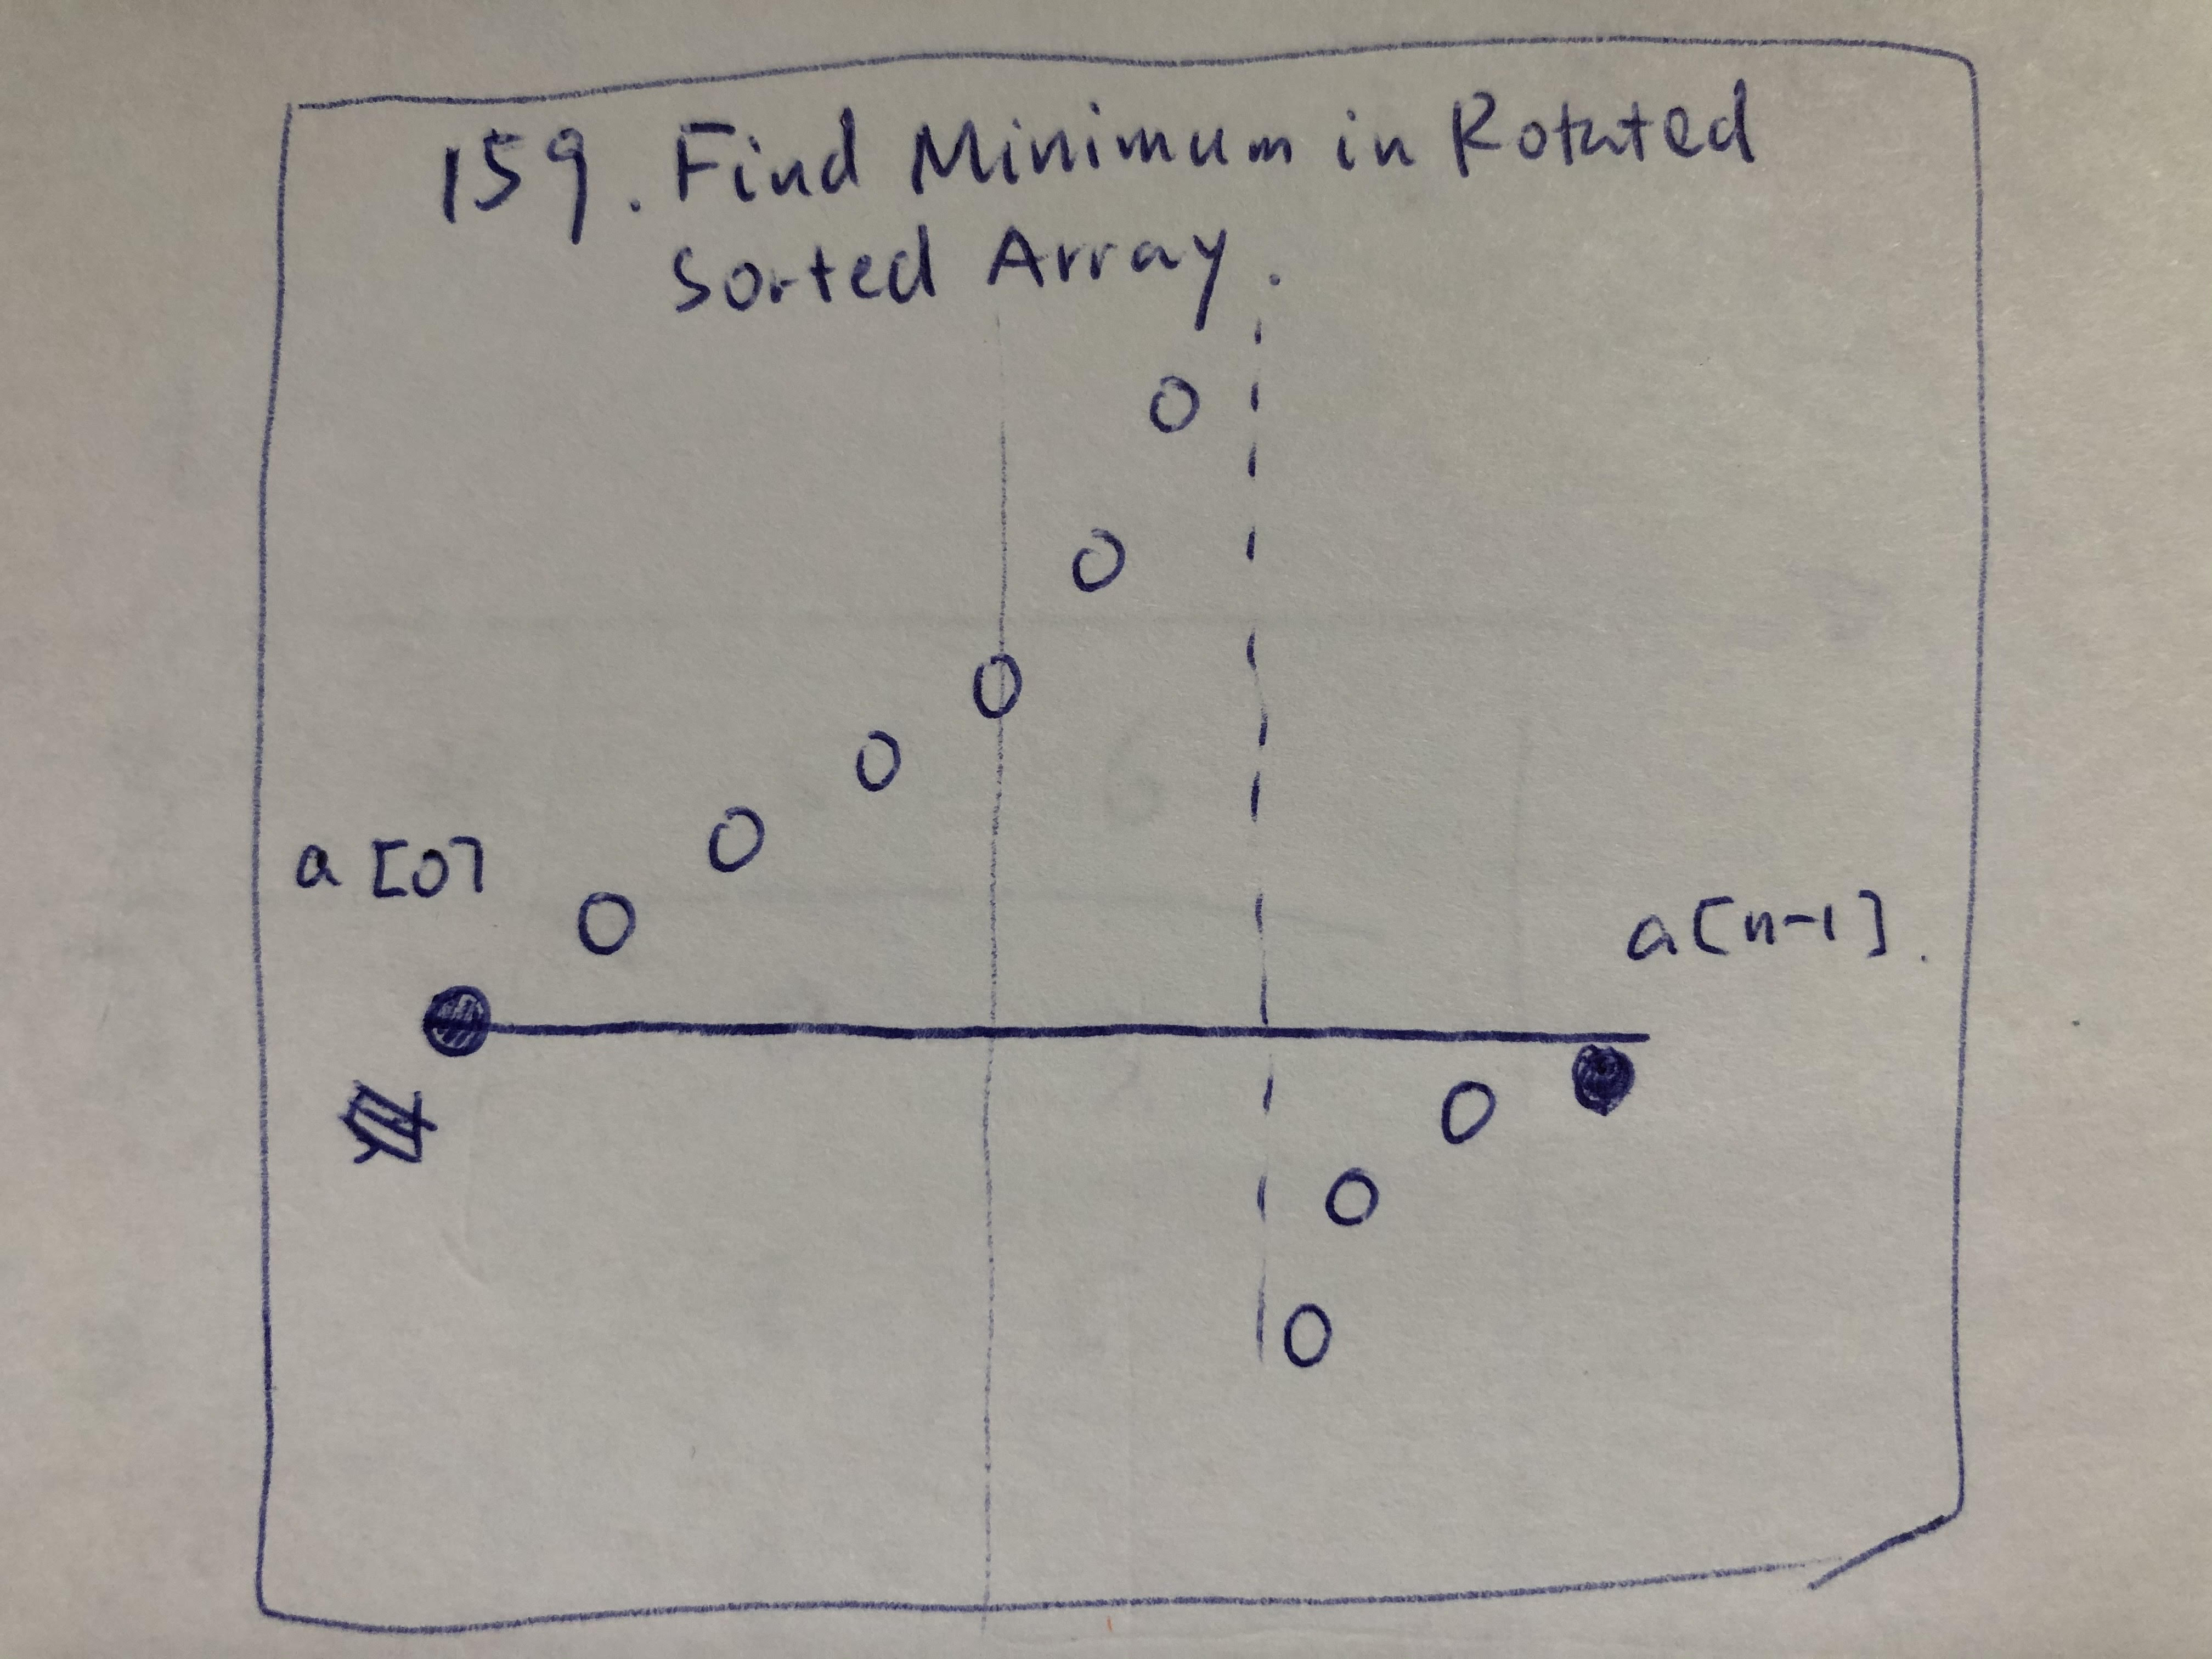 159. Find Minimum in Rotated
Sorted Array.
a[0]
a[n-1].